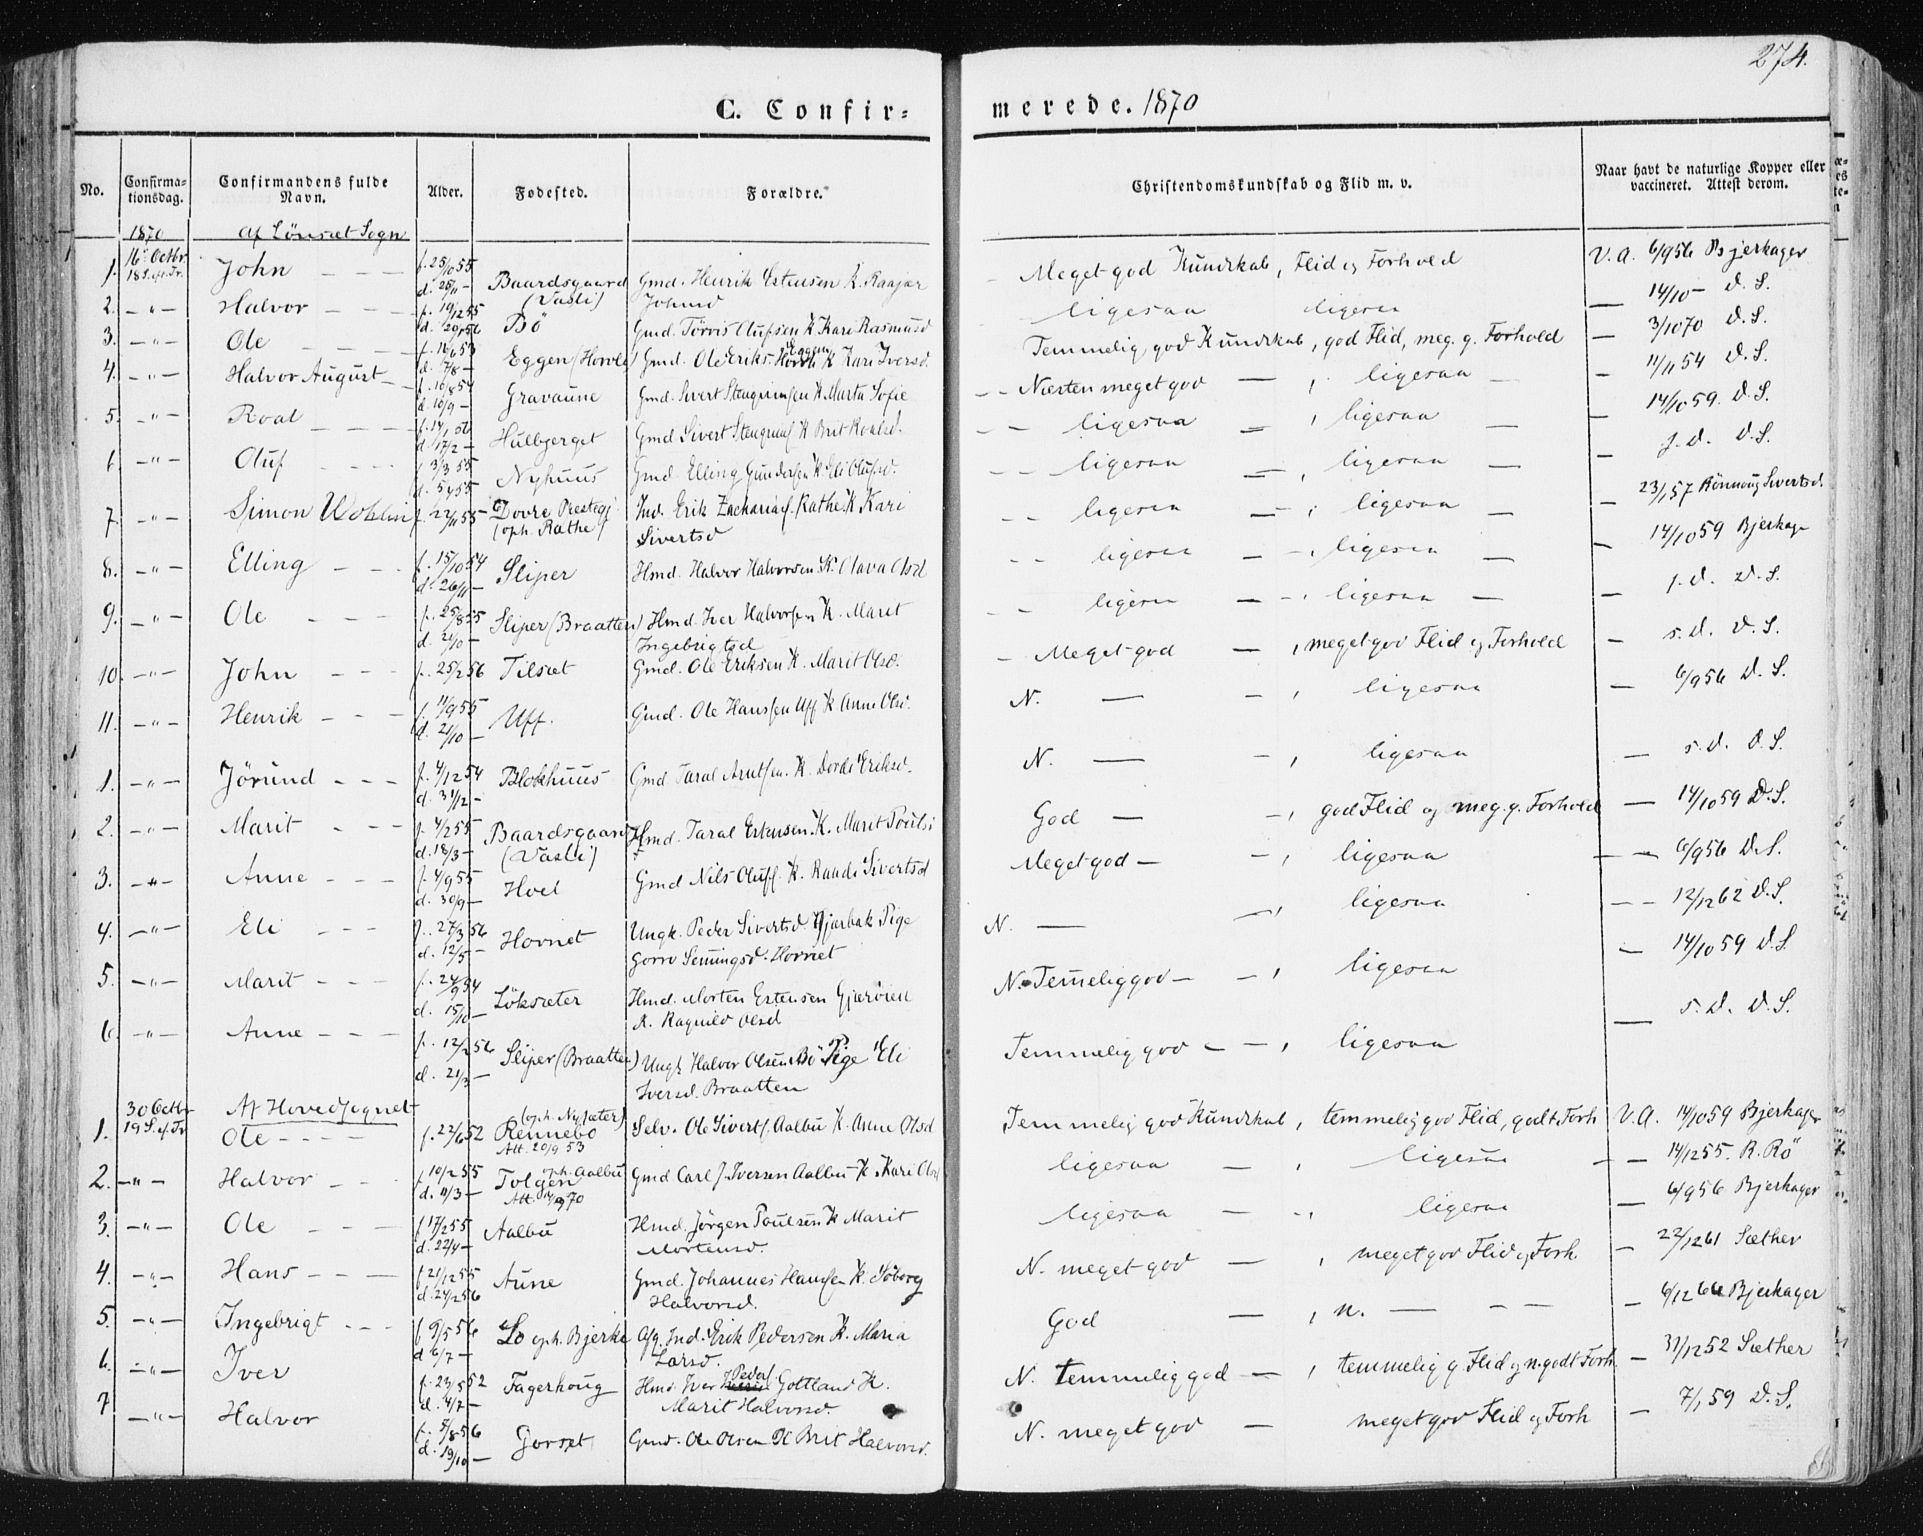 274.
C. Confir= merede. 1870
No. Confirma-tionsdag. Confirmandens fulde Navn. Alder. Fødested. Forældre. Christendomskundskab og Flid m. v. Naar havt de naturlige Kopper eller vaccineret. Attest derom.
1870 af Lönset Sogn
1. 16. Octbr 18 S. ef. Tr. John f. 25/10 55 d. 25/11 - Baardsgaard (Vasli) Gmd. Henrik Estensen K. Raajar Johnsd Meget god Kundskab, Flid og Forhold V. A. 6/9 56 Bjerkager
2. -"- Halvor f. 19/12 55 d. 20/1 56 Bö Gmd. Törris Olufsen K. Kari Rasmusd ligesaa ligesaa — 14/10 - D. S.
3. -"- Ole d. 7/8 - Eggen (Horvli) Gmd. Ole Eriks. Eggen Horvli K. Kari Iversd. Temmelig god Kundskab, god Flid, meg. g. Forhold — 3/10 70 D. S.
4. -"- Halvor August f. 16/8 54 d. 10/9 - Gravaune Gmd. Sivert Stengrimsen K. Marta Sofie Næsten meget god — , ligesaa — 11/1 54 D. S.
5. -"- Roal f. 14/1 56 d. 17/2 - Hulbjerget Gmd Sivert Stengrims K. Brit Roalsd. ligesaa — , ligesaa — 14/10 59. D. S.
6. -"- Oluf f. 3/3 55 d. 5/4 55 Nyhuus Gmd. Elling Gundersen K. Eli Olufsd. ligesaa — , ligesaa — s. d. D. S.
7. -"- Simon Wohlin f. 22/11 55 Dovre Prestegj. (oph. Rathe) Ind. Erik Zacharias. Rathe K. Kari Sivertsd ligesaa — , ligesaa — 23/1 57 Rönnaug Sivertsd.
8. -"- Elling f. 15/10 54 d. 26/11 - Sliper Hmd. Halvor Halvorsen K. Olava Olsd ligesaa — , ligesaa — 14/10 59 Bjerkage
9. -"- Ole f. 25/8 55 d. 21/10 - Sliper (Braatten) Hmd. Iver Halvorsen K. Marit Ingebrigtsd ligesaa — , ligesaa — s. d. D. S.
10. -"- John f. 25/2 56 Tilset Gmd. Ole Eriksen K. Marit Olsd. Meget god — , meget god Flid og Forhold — s. d. D. S.
11. -"- Henrik f. 11/9 55 d. 21/10 - Uff. Gmd. Ole Hanssen Uff K. Anne Olsd. N. — — , ligesaa — 6/9 56 D. S.
1. -"- Jörund f. 4/12 54 d. 31/12 - Blokhuus Gmd Taral Arntsen. K. Dordi Eriksd. N. — — , ligesaa — s. d. D. S.
2. -"- Marit f. 4/2 55 d. 18/3 - Baardsgaard (Vasli) Hmd. Taral Estensen. K. Marit Poulsd God — — , god Flid og meg. g. Forhold — 14/10 59 D. S.
3. -"- Anne f. 4/9 55 d. 30/9 - Hoel Gmd Nils Olufs. K. Randi Sivertsd Meget god — — , ligesaa — — 6/9 56 D. S.
4. -"- Eli f. 27/3 56 d. 12/5 - Hovnet Ungk. Peder Sivertsd Bjerbak Pige Gorro Semingsd. Hovnet N. — — , ligesaa — — 12/12 62 D. S.
5. -"- Marit f. 24/9 54 d. 15/10 - Löksæter Hmd. Morten Estensen Gjæröien K. Ragnild Olsd N. Temelig god — — , ligesaa — 14/10 59 D. S.
6. -"- Anne f. 12/2 56 d. 21/3 - Sliper (Braatten) Ungk Halvor Olsen Bö Pige Eli Iversd. Braatten Temmelig god — — , ligesaa — s. d. D. S.
Af Hovedsognet
1. 30 Octbr 19 S. ef. Tr. Ole f. 22/6 52 (oph. Nysæter) Rennebo Att. 20/9 53 Selv. Ole Siverts. Aalbu K. Anne Olsd Temmelig god Kundskab, temmelig god Flid, godt Forh V. A. 14/10 59 Bjerkager
2. -"- Halvor f. 10/2 55 d. 11/3 - oph. Aalbu Tolgen Gmd Carl J. Iversen Aalbu K. Kari Olsd ligesaa — , ligesaa — — 14/12 55. R. Rö
3. -"- Ole f. 17/2 55 d. 22/4 - Aalbu Hmd. Jörgen Poulsen K Marit Mortensd. ligesaa — , ligesaa — 6/9 56 Bjerkager
4. -"- Hans f. 21/12 55 d. 24/2 56 Aune Gmd. Johannes Hansen K. Söborg Halvorsd. N. meget god — , meget god Flid og Forh. — 22/12 61 Sæther
5. -"- Ingebrigt f. 9/5 56 d. 6/7 - Lo oph. Bjerke Afg. Ind. Erik Pedersen K. Maria Larsd. God — , n. — — — 6/12 66 Bjerkager
6. -"- Iver f. 23/5 52 d. 4/7 - Fagerhoug Hmd. Iver Peders. Gottland K. Marit Halvorsd. N. temmelig god — , temmelig g. Flid og n. godt Forh — 31/12 52 Sæther
7 -"- Halvor f. 5/8 56 d. 19/10 - Gorset Gmd. Ole Olsen K Brit Halvorsd. N. meget god — meget god Flid og Forh — 7/1 59 D. S.